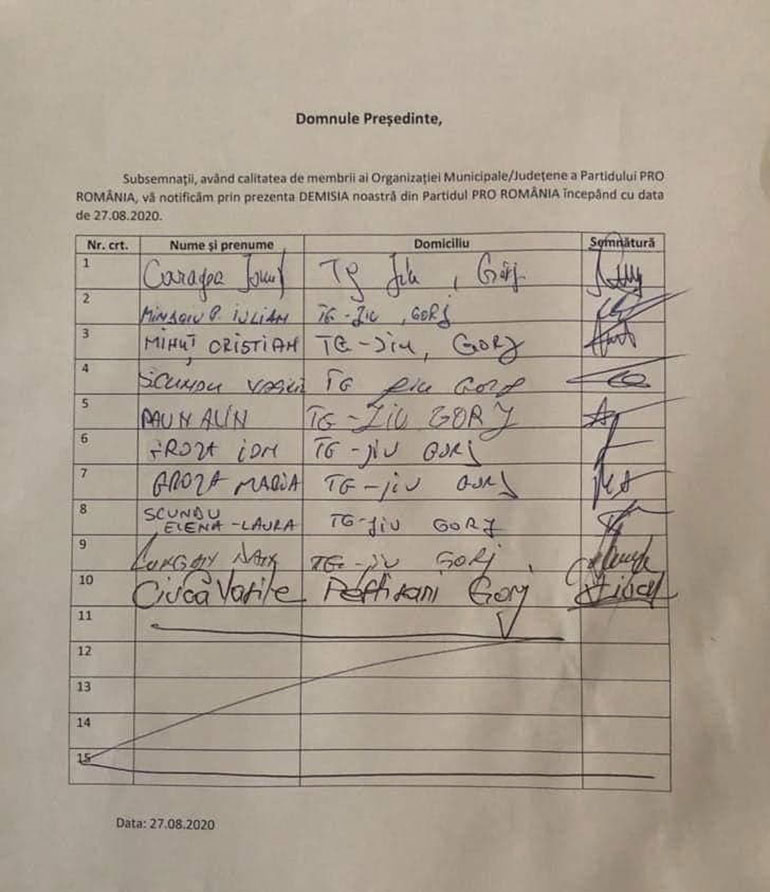 Domnule Președinte,
Subsemnații, având calitatea de membrii ai Organizației Municipale/Județene a Partidului PRO
ROMÂNIA, vă notificăm prin prezenta DEMISIA noastră din Partidul PRO ROMÂNIA începând cu data
de 27.08.2020.
Nr. crt. Nume și prenume Domiciliu Semnătură
1 Caragea Ionuț Tg Jiu, Gorj
2 IULIAN TG-JIU, GORJ
3 MIHUȚ CRISTIAN TG-Jiu, GORJ
4 SCUNDU VASILE TG Jiu Gorj
5 PAUN ALIN TG-JIU GORJ
6 GROZA ION TG-JIU GORJ
7 GROZA MARIA TG-JIU GORJ
8 SCUNDU
ELENA-LAURA TG-Jiu GORJ
9 TG-JIU GORJ
10 Ciucă Vasile Peștisani Gorj
11
12
13
14
15
Data: 27.08.2020